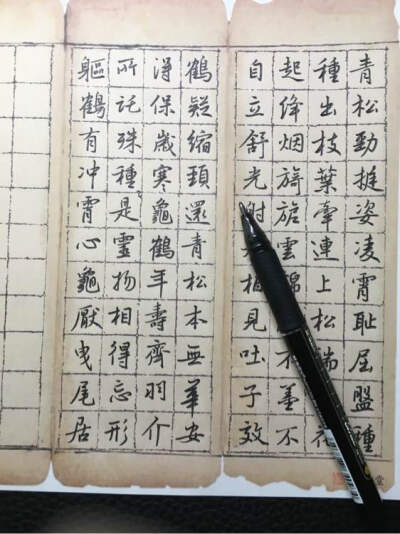 青松勁挺姿凌霄恥屈盤種
種出枝葉牽連上松端花
起絳烟旖旎雲錦不羞不
自立舒光相見吐子效
鶴疑縮頸還青松本無華安
得保歲寒龜鶴年壽齊羽介
所託殊種是靈物相得忘形
軀鶴有冲霄心龜厭曳尾居